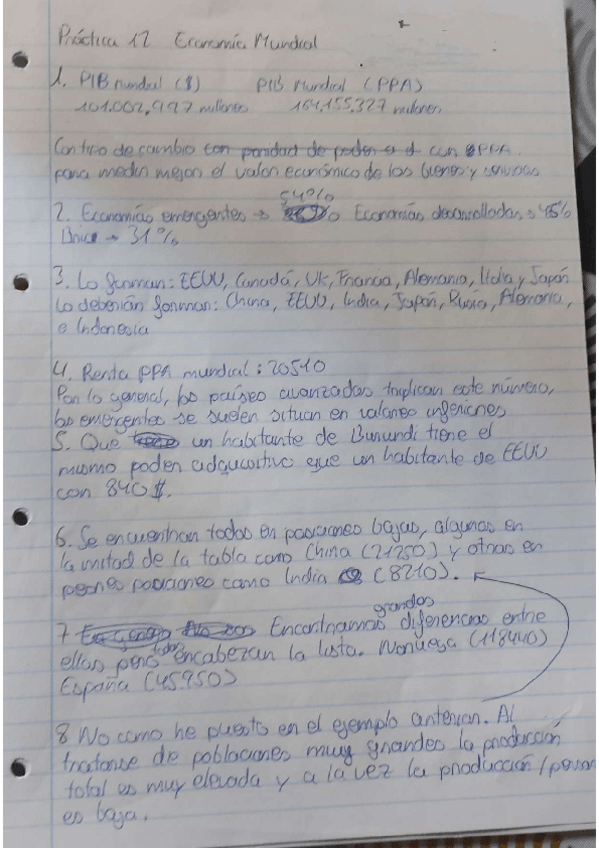 Práctica 12 Economía Mundial
1. PIB mundial ($) PIB Mundial (PPA)
101.002,997 millones 164,155.327 millones
Con tipo de cambio con paridad de poder a d con PPA.
para medir mejor el valor económico de los bienes y servicios
54%
2. Economías emergentes → Economías desarrolladas → 45%
Brics → 31%
3. Lo forman: EEUU, Canadá, UK, Francia, Alemania, Italia y Japón
Lo deberían formar: China, EEUU, India, Japón, Rusia, Alemania,
e Indonesia
4. Renta PPA mundial: 20510
Por lo general, los países avanzados triplican este número,
los emergentes se suelen situar en valores inferiores
5. Que un habitante de Burundi tiene el
mismo poder adquisitivo que un habitante de EEUU
con 840$.
6. Se encuentran todos en posiciones bajas, algunas en
la mitad de la tabla como China (21250) y otras en
peores posiciones como India (8210).
grandes
7 Encontramos diferencias entre
ellas pero todos encabezan la lista. Noruega (118440)
España (45.950)
8 No como he puesto en el ejemplo anterior. Al
tratarse de poblaciones muy grandes la producción
total es muy elevada y a la vez la producción/person
es baja.